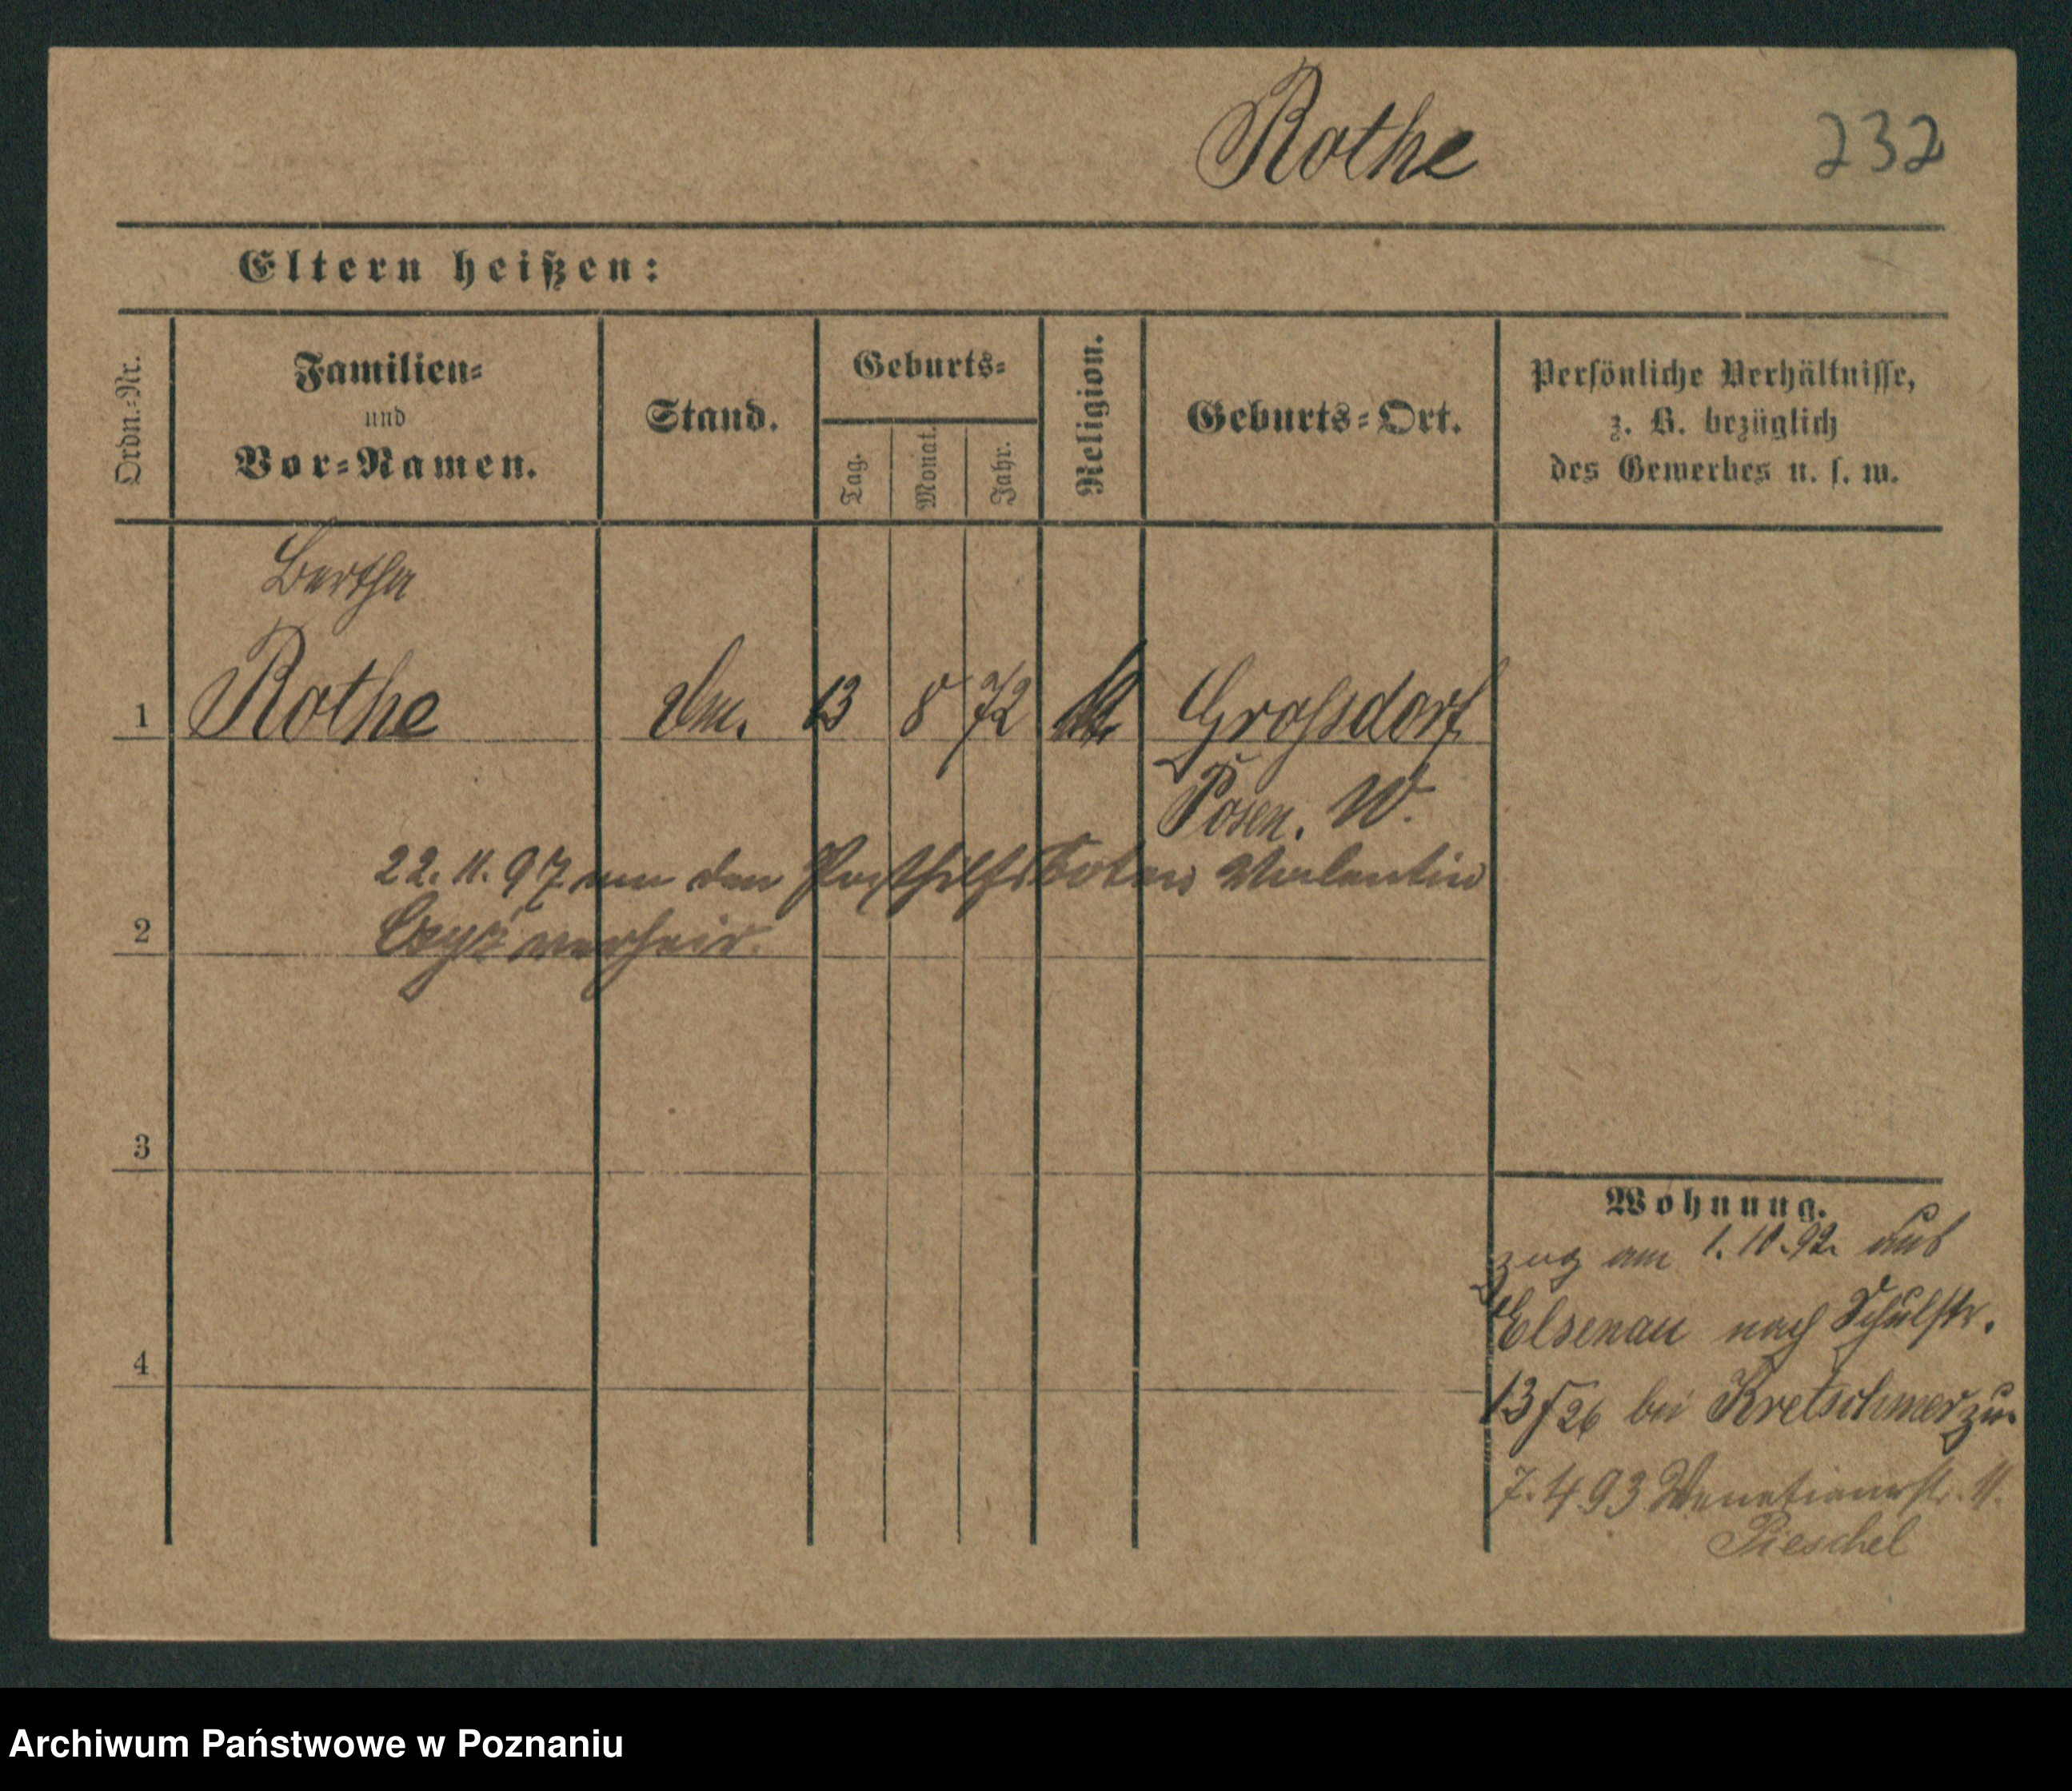 Rothe 232
Eltern heißen:
Ordn.-Nr. Familien- und Vor-Namen. Stand. Geburts- Tag. Monat. Jahr. Religion. Geburts-Ort. Persönliche Verhältnisse, z. B. bezüglich des Gewerbes u. s. w.
Bertha
1 Rothe 13 8 72 Grossdorf
Posen. W.
22. 11. 97 den Posthilfsboten Valentin
2 verheir.
3
Wohnung.
zug am 1. 10. 92 aus
Elsenau nach Schulstr.
4
13 / 26 bei Kretschmer zu.
7. 4. 93 Venetianerstr. 11.
Pieschel
Archiwum Państwowe w Poznaniu